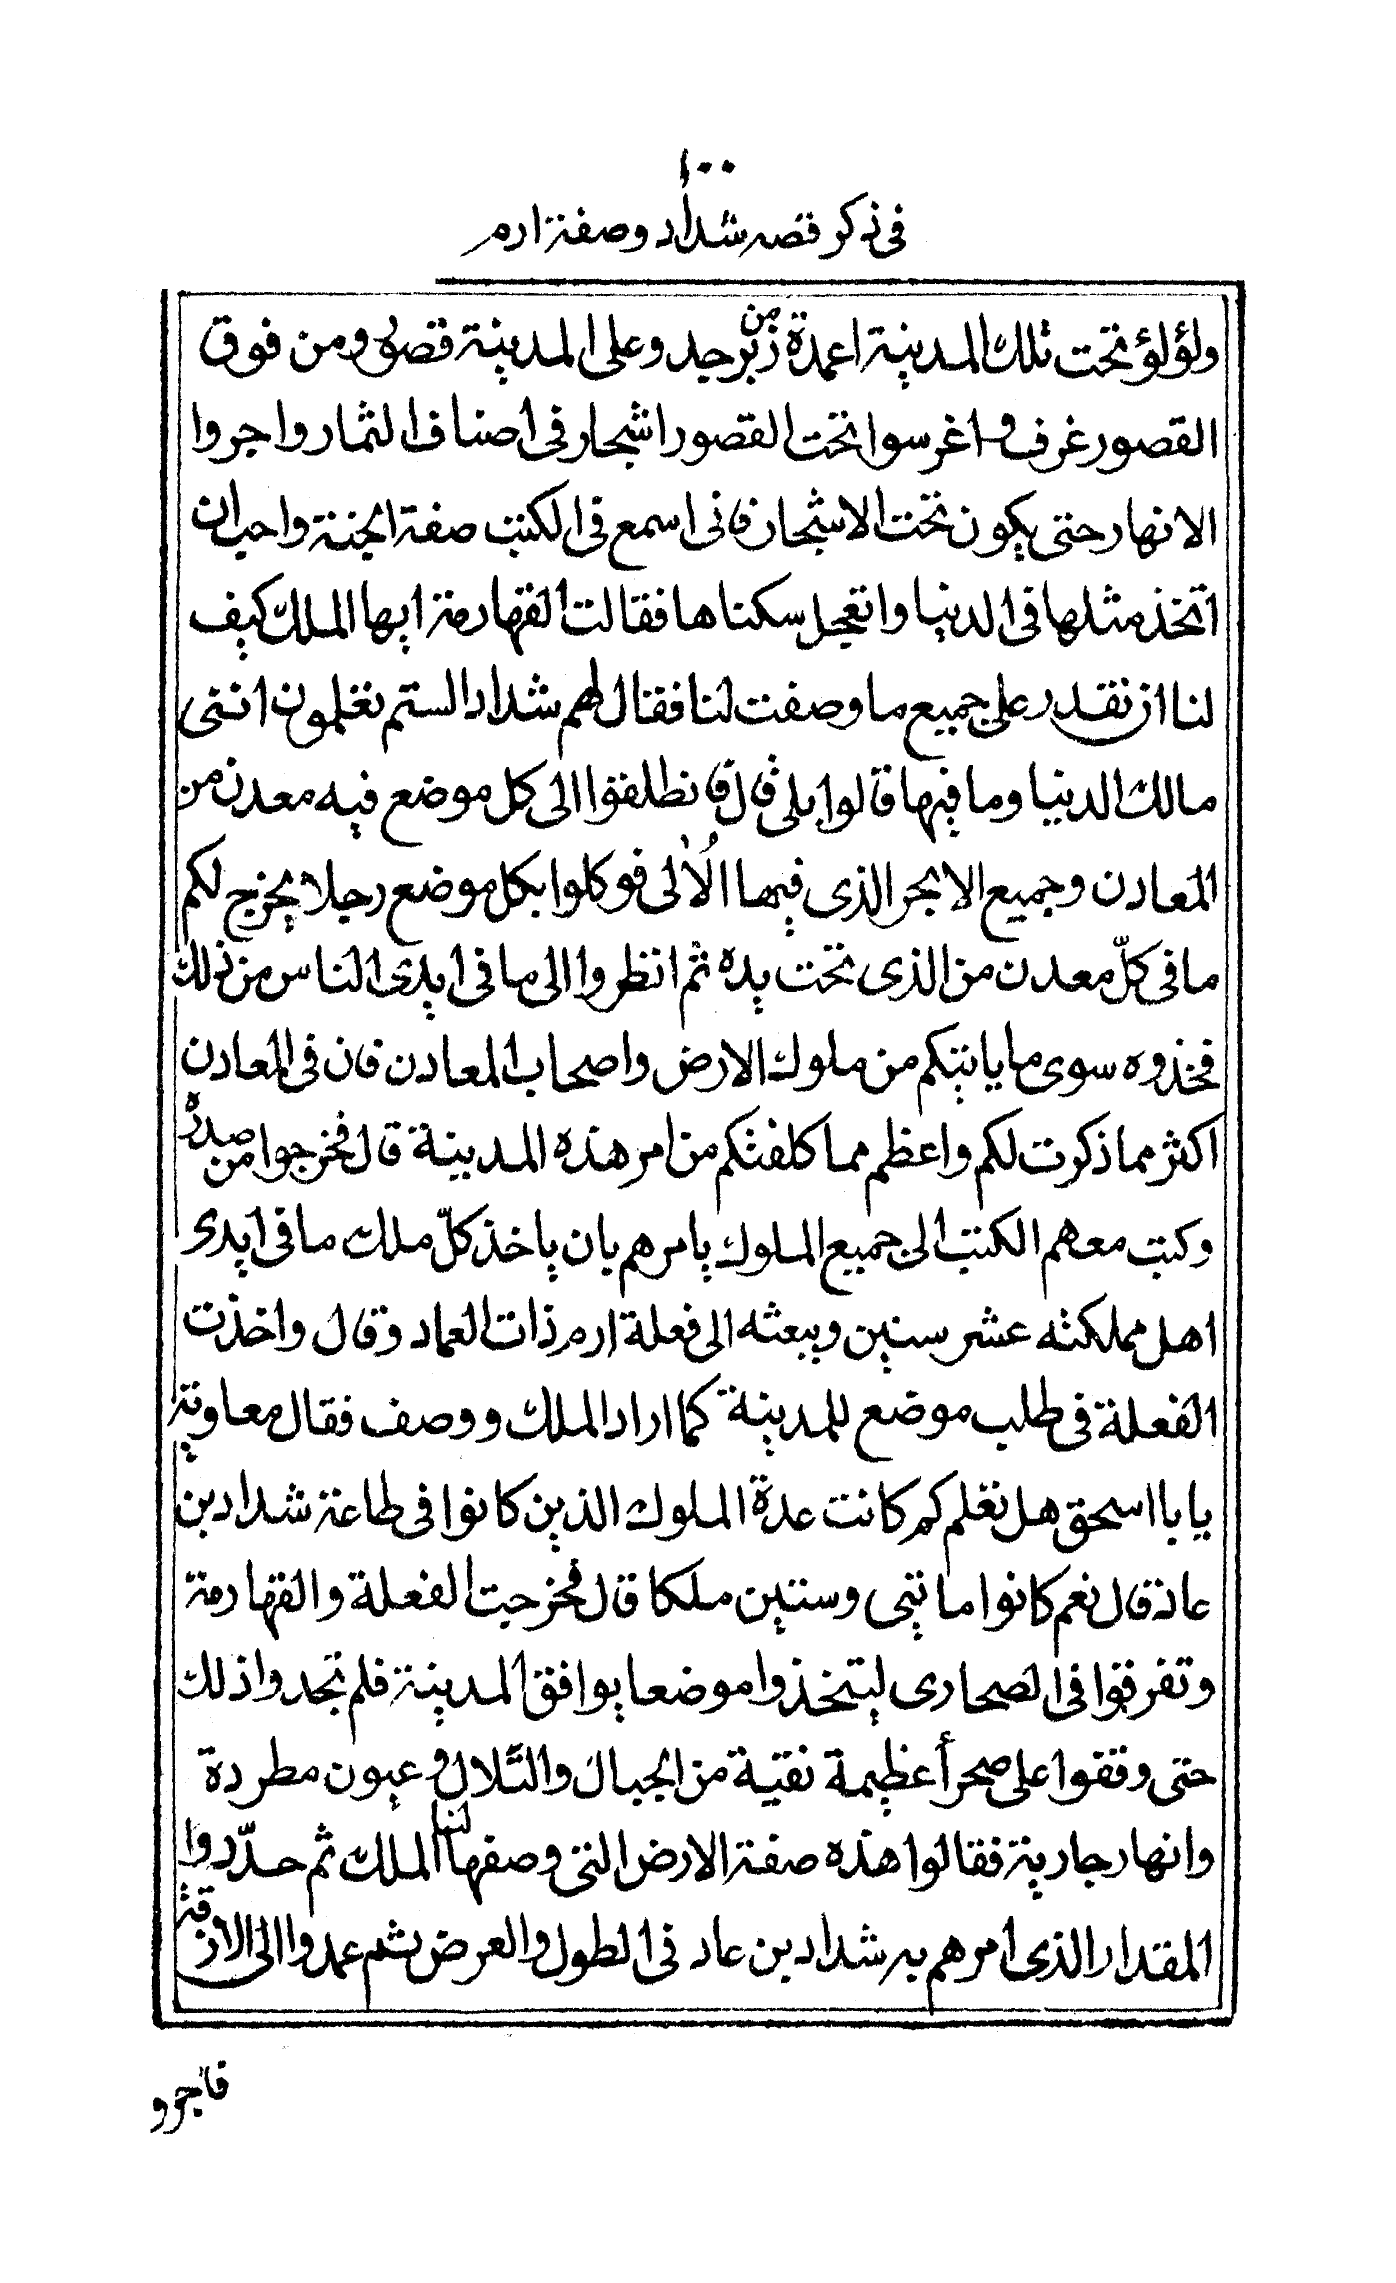 ١٠٠
فى ذكر قصه شداد وصفة ارم
ولؤلؤ تحت تلك المدينة اعمدة من زبرجد وعلى المدينة قصور ومن فوق
القصور غرف واغرسوا تحت القصور اشجار فى اصناف الثمار واجروا
الانهار حتى يكون تحت الاشجار فانى اسمع فى الكتب صفة الجنة واحب ان
اتخذ مثلها فى الدنيا واتعجل سكناها فقالت القهارمة ايها الملك كيف
لنا ان نقدر على جميع ما وصفت لنا فقال لهم شداد الستم تعلمون اننى
مالك الدنيا وما فيها قالوا بلى قال فانطلقوا الى كل موضع فيه معدن من
المعادن وجميع الابحر الذى فيها الالٰى فوكلوا بكل موضع رجلا يخرج لكم
ما فى كلّ معدن من الذى تحت يده ثم انظروا الى ما فى ايدى الناس من ذلك
فخذوه سوى ما ياتيكم من ملوك الارض واصحاب المعادن فان فى المعادن
اكثر مما ذكرت لكم واعظم مما كلفتكم من امر هذه المدينة قال فخرجوا من صدره
وكتب معهم الكتب الى جميع الملوك يامرهم بان ياخذ كلّ ملك ما فى ايدى
اهل مملكته عشر سنين ويبعثه الى فعلة ارم ذات العماد وقال واخذت
الفعلة فى طلب موضع للمدينة كما اراد الملك ووصف فقال معاوية
يابا اسحق هل تعلم كم كانت عدة الملوك الذين كانوا فى طاعة شداد بن
عاد قال نعم كانوا مائتى وستين ملكا قال فخرجت الفعلة والقهارمة
وتفرقوا فى الصحارى ليتخذوا موضعا يوافق المدينة فلم تجدوا ذلك
حتى وقفوا على صحرأ عظيمة نقية من الجبال والتّلال وعيون مطردة
وانهار جارية فقالوا هذه صفة الارض التى وصفها لنا الملك ثم حدّروا
المقدار الذى امرهم به شداد بن عاد فى الطول والعرض ثم عمدوا الى الازقة
فاجرو